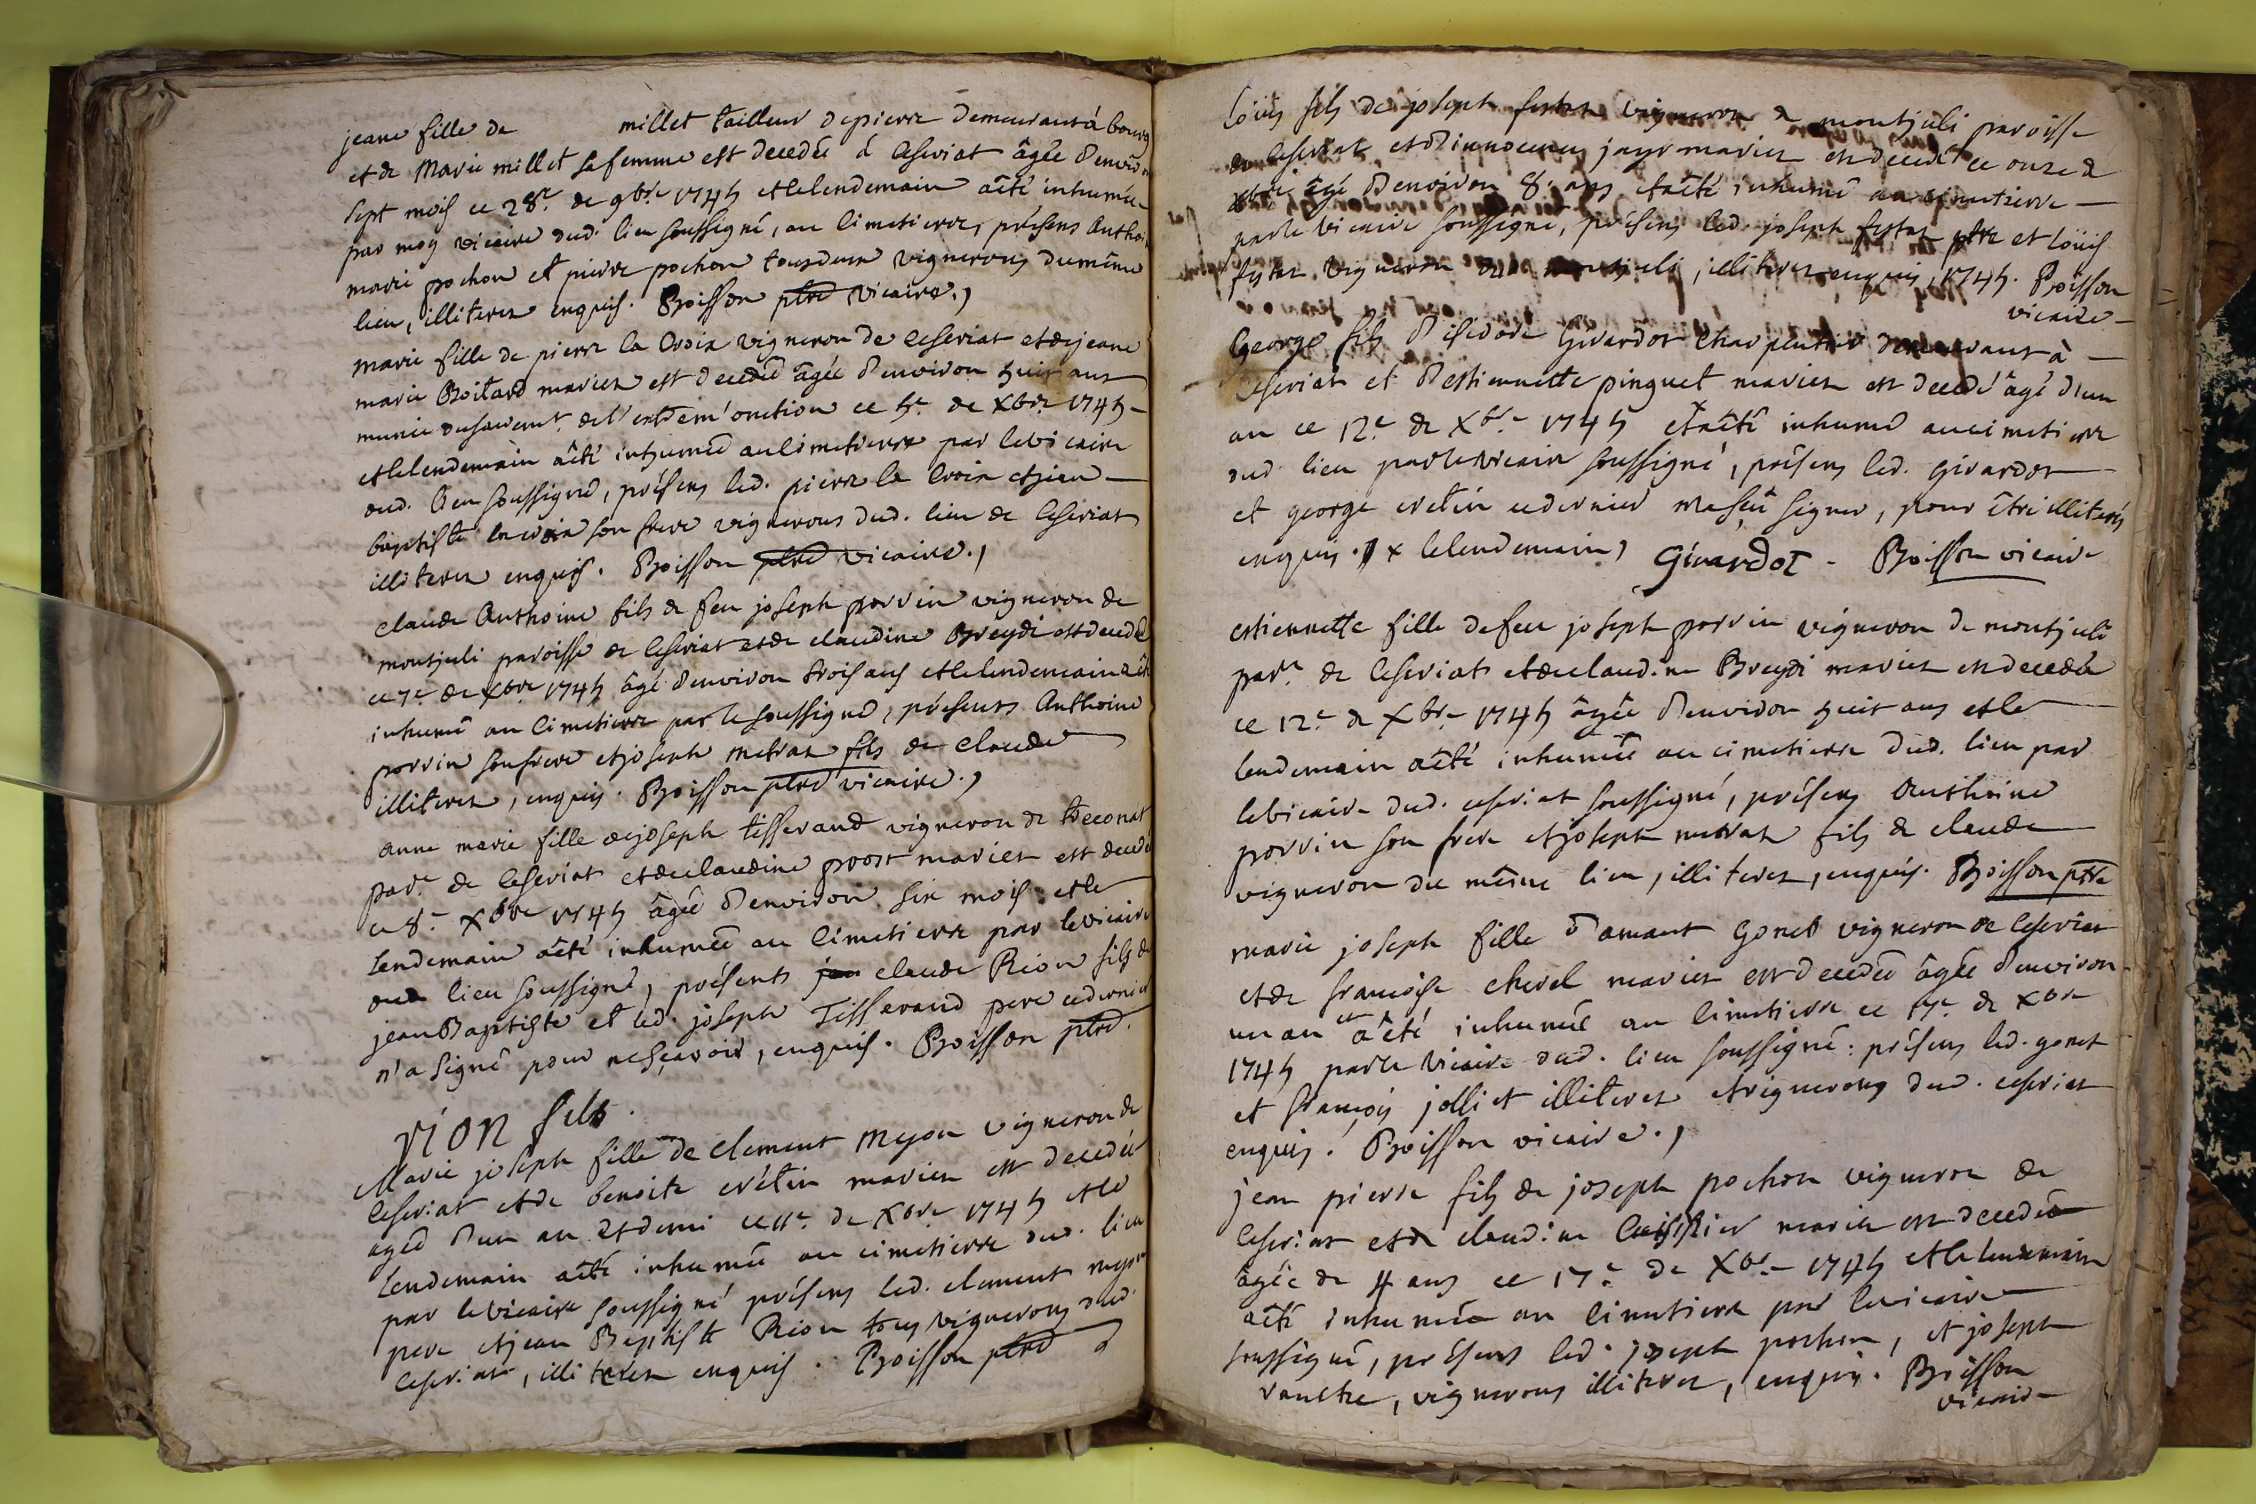 jeane fille de millet tailleur de pierre demeurant à bourg
et de Marie millet sa femme est decedée à Ceseriat âgée d'environ
sept mois ce 28.e de 9bre 1745 et le lendemain a êté inhumée
par moy vicaire dud. lieu soussigné, au cimetierre, présens Anthoine
marie pochon et pierre pochon tous deux vignerons du même
lieu, illiteres enquis. Boisson ptre vicaire.,
marie fille de pierre la Croix vigneron de Ceseriat et de jeane
marie Boitard mariés est decedée âgée d'environ huit ans
munie du sacremt. de l'extrem'onction ce 5.e de Xbre 1745
et le lendemain a êté inhumée au cimetierre par le vicaire
dud. lieu soussigné, présens led. pierre la Croix et jean
baptiste lacroix son frere vignerons dud. lieu de Ceseriat
illiteres enquis. Boisson ptre vicaire.,
claude Anthoine fils de feu joseph porrin vigneron de
montjuli paroisse de Ceseriat et de claudine Breydi est decedé
ce 7.e de Xbre 1745 âgé d'environ trois ans et le lendemain a êté
inhumé au cimetierre par le soussigné, présents Anthoine
porrin son frere et joseph metras fils de claude
illiteres, enquis. Boisson ptre vicaire.,
anne marie fille de joseph tisserand vigneron de treconat
par.e de Ceseriat et de claudine proost mariés est decedé
ce 8.e Xbre 1745 âgée d'environ six mois et le
lendemain a êté inhumée au cimetierre par le vicaire
dud lieu soussigné, présents claude Rion fils de
jean Baptiste et led. joseph Tisserand pere ce dernier
n'a signé pour ne sçavoir, enquis. Boisson ptre.
rion fils.
Marie joseph fille de clement myon vigneron de
Ceseriat et de benoite crétin mariés est decedée
agée d'un an et demi ce 11.e de Xbre 1745 et le
lendemain a êté inhumée au cimetierre dud. lieu
par le vicaire soussigné présens led. clement myon
pere et jean Baptiste Rion tous vignerons dud.
Ceseriat, illiteres enquis. Boisson ptre
Loüis fils de joseph festas vigneron de montjuli paroisse
de Ceseriat et d'innocence jayr mariés est decedé ce onze de
Xbre âgé d'environ 8. ans et a êté inhumé au cimetierre
par le vicaire soussigné, présens led. joseph festas ptre et Loüis
festas vigneron de montjuli, illiteres enquis, 1745. Boisson
vicaire
George fils d'isidore Girardot charpentier demeurant à
Ceseriat et d'estiennette pinguet mariés est decedé âgé d'un
an ce 12.e de Xbre 1745 x et a êté inhumé au cimetierre
dud. lieu par le vicaire soussigné, présens led. girardot
et george cretin ce dernier n'a sçu signer, pour être illiterés
enquis. x le lendemain, Girardot - Boisson vicaire
estiennette fille de feu joseph porrin vigneron de montjuli
par.e de Ceseriat et de claudine Breydi mariés est decedée
ce 12.e de Xbre 1745 âgée d'environ huit ans et le
lendemain a êté inhumée au cimetierre dud. lieu par
le vicaire dud. ceseriat soussigné, présens Anthoine
porrin son frere et joseph metras fils de claude
vigneron du même lieu, illiteres, enquis. Boisson ptre
marie joseph fille d'amant Gonet vigneron de Ceseriat
et de françoise chevel mariés est decedée âgée d'environ
un an et a êté inhumée au cimetierre ce 17.e de Xbre
1745 par le vicaire dud. lieu soussigné: présens led. gonet
et françois jolliet illiteres et vignerons dud. ceseriat
enquis. Boisson vicaire.,
jean pierre fils de joseph pochon vigneron de
Ceseriat et de claudine mariés est decedée
âgée de 4 ans ce 17.e de Xbre 1745 et le lendemain
a êté inhumée au cimetierre par le vicaire
soussigné, présens led. joseph pochon, et joseph
vauthe, vignerons illiteres, enquis. Boisson
vicaire